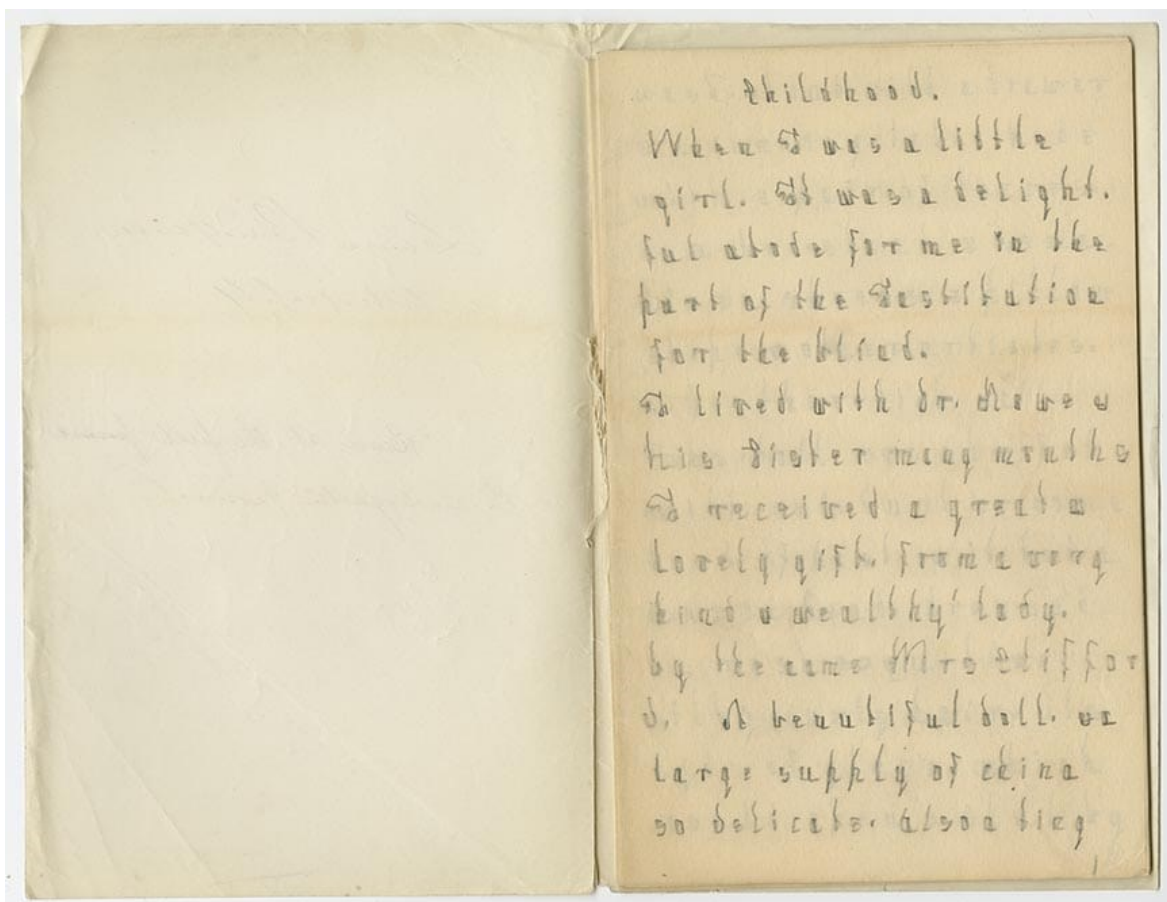 Childhood.
When I was a little
girl. It was a delight.
ful abode for me in the
part of the Institution
for the blind.
I lived with Dr. Howe &
his Sister many months
I received a great &
lovely gift. from a very
kind & wealthy lady.
by the name Mrs Cliffor
d. A beautiful doll. &a
large supply of china
so delicate. Also a tiny